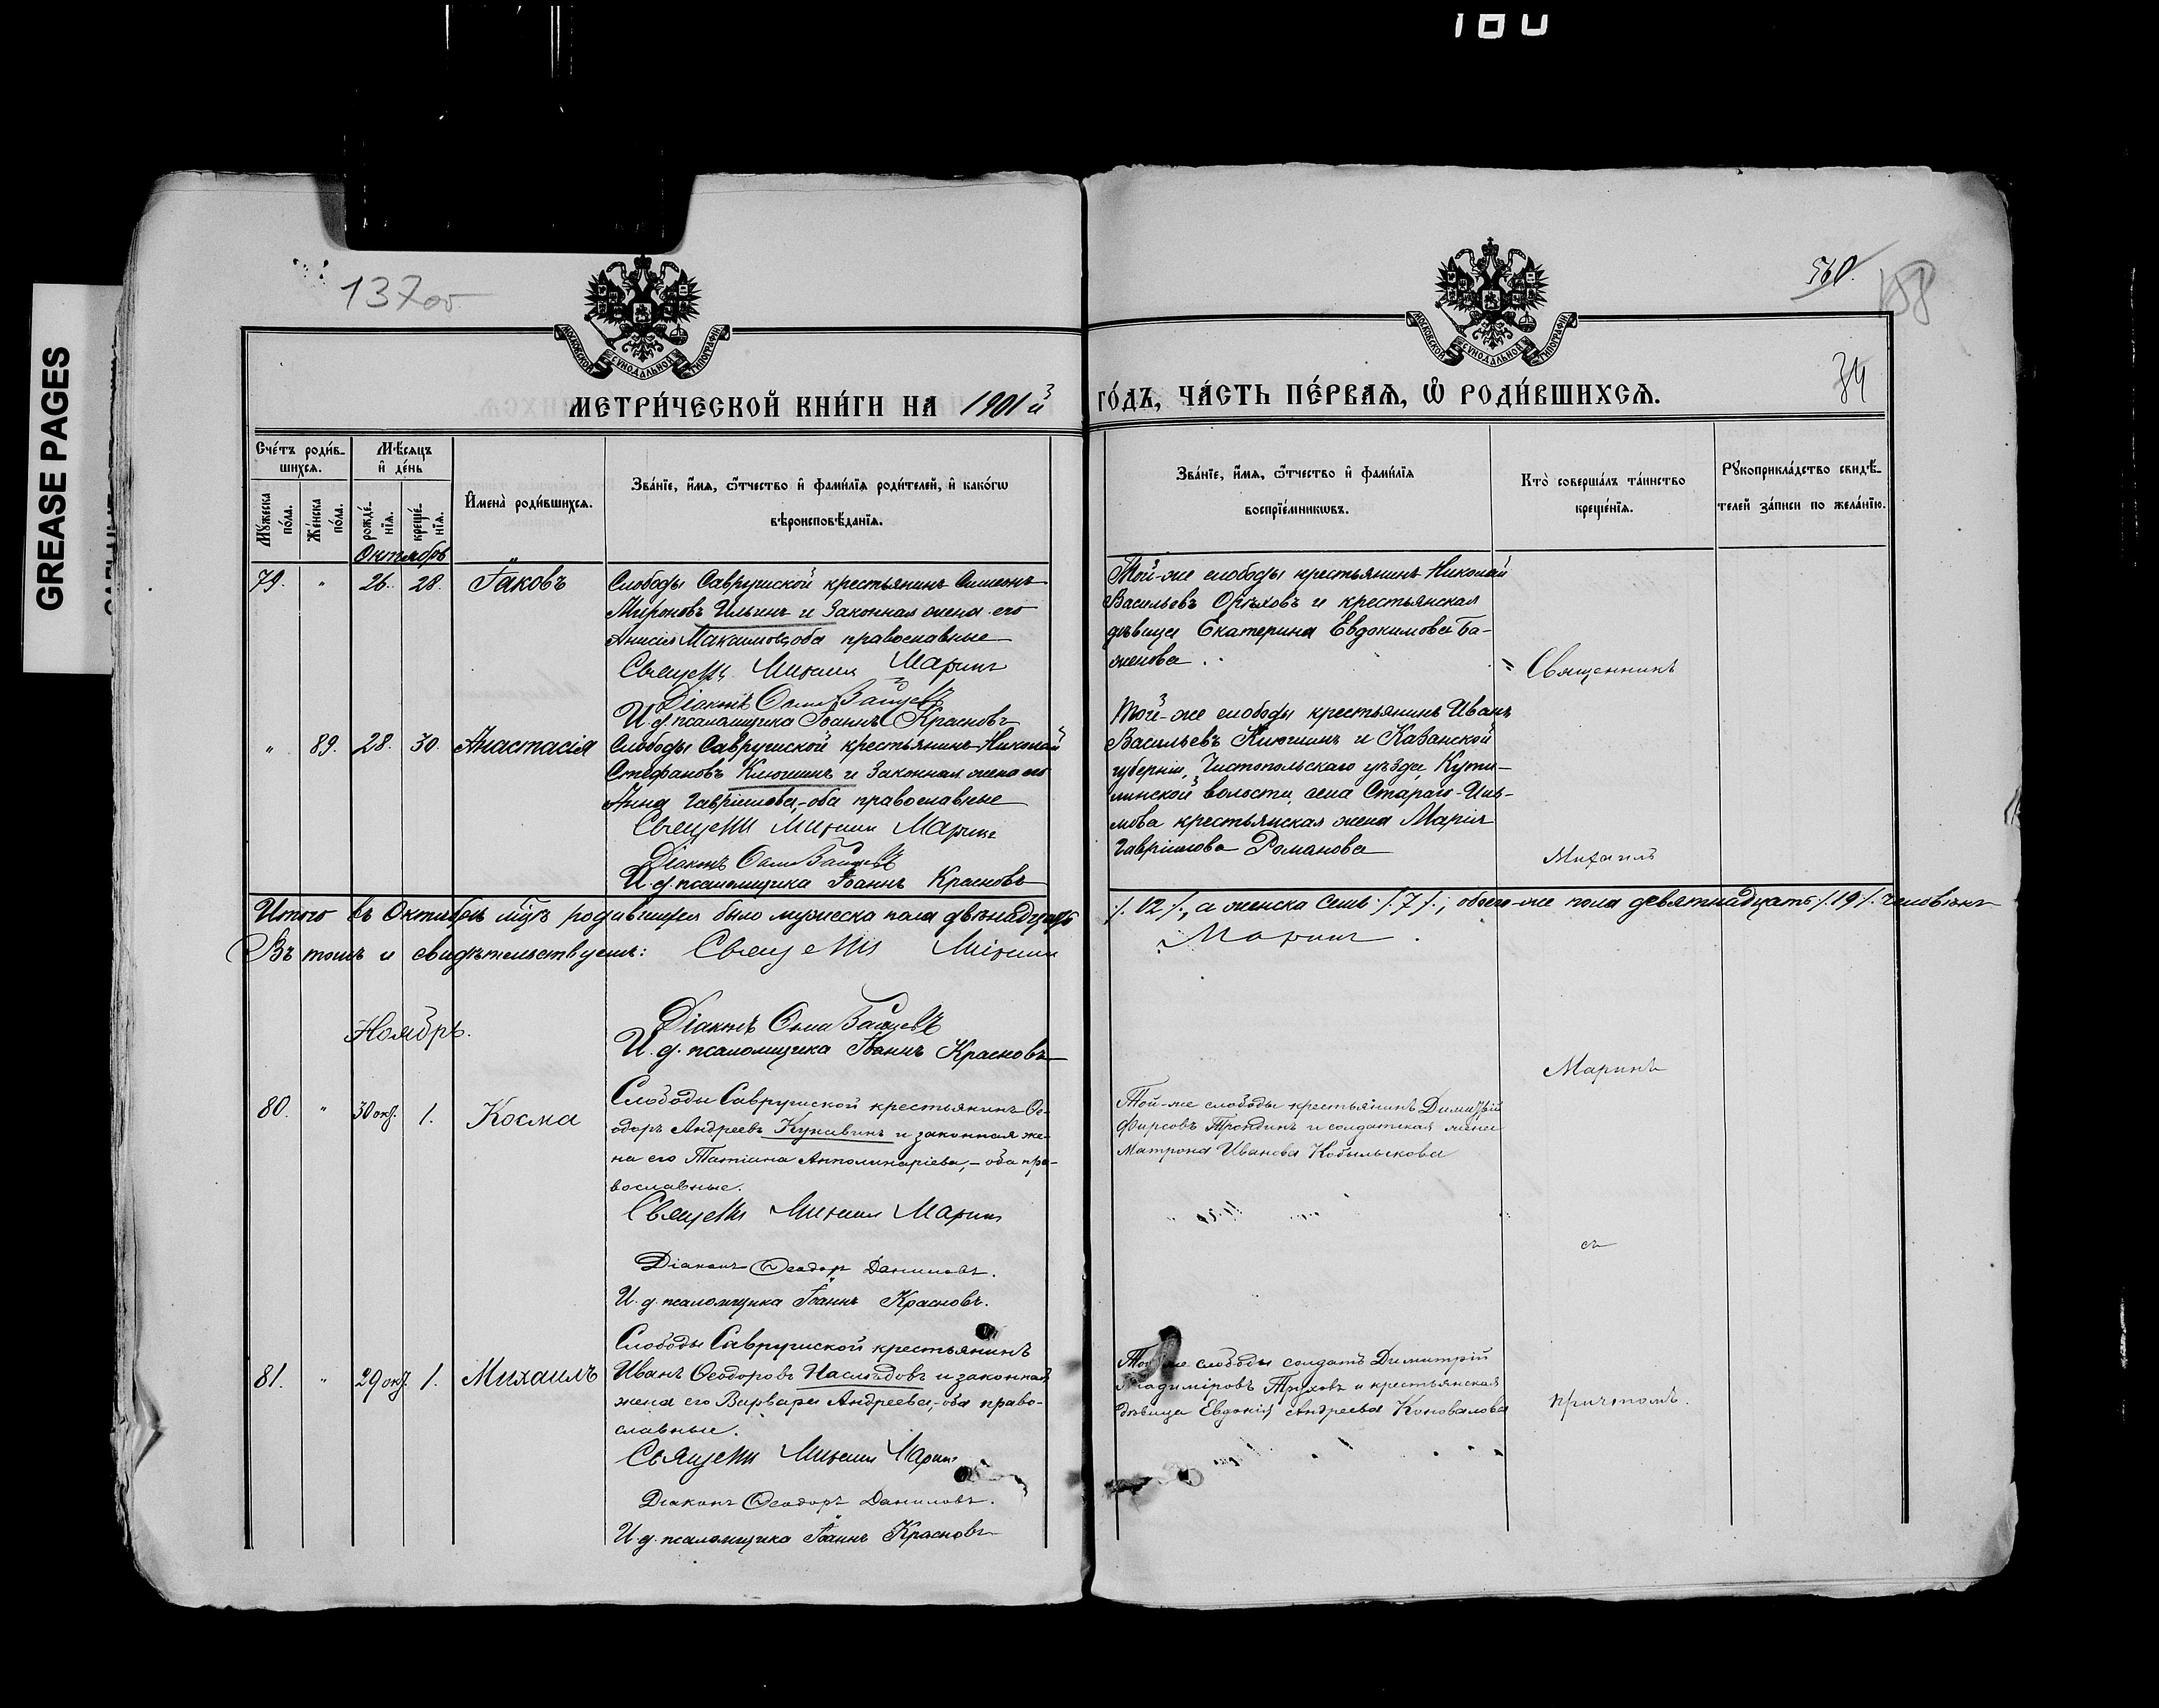 180
GREASE PAGES
137об
560.
158
34
МОСКОВСКОЙ СѴНОДАЛЬНОЙ ТИПОГРАФІИ
МОСКОВСКОЙ СѴНОДАЛЬНОЙ ТИПОГРАФІИ
МЕТРИ́ЧЕСКОЙ КНИ́ГИ НА 1901й
ГО́ДЪ, ЧА́СТЬ ПЕ́РВАѦ, Ѡ҆ РОДИ́ВШИХСѦ.
Сче́тъ роди́в-
шихсѧ.
Мꙋ́жеска по́ла.
Же́нска по́ла.
Мѣ́сѧцъ и҆ де́нь
рожде́нїѧ.
креще́нїѧ.
И҆мена̀ роди́вшихсѧ.
Зва́нїе, и҆́мѧ, ѻ҆́тчество и҆ фами́лїѧ роди́телей, и҆ како́гѡ
вѣроисповѣ́данїѧ.
Зва́нїе, и҆́мѧ, ѻ҆́тчество и҆ фами́лїѧ
воспрїе́мникѡвъ.
Кто̀ соверша́лъ та́инство
креще́нїѧ.
Рꙋкоприкла́дство свидѣ́-
телей за́писи по жела́нїю.
Октябрь
79. " 26. 28. Іаковъ
Слободы Савружской крестьянинъ Симеонъ
Мироновъ Ильинъ и законная жена его
Анисія Максимова, оба православные
Священ. Михаилъ Маринъ
Діаконъ Ѳома Зайцевъ
И. д. псаломщика Іоаннъ Красновъ
Той-же слободы крестьянинъ Николай
Васильевъ Орѣховъ и крестьянская
дѣвица Екатерина Евдокимова Ба-
женова.
Священникъ
" 89. 28. 30. Анастасія
Слободы Савружской крестьянинъ Николай
Стефановъ Клюгинъ и законная жена его
Анна Гавріилова, - оба православные
Священ Михаилъ Маринъ
Діаконъ Ѳома Зайцевъ
И. д. псаломщика Іоаннъ Красновъ
Той-же слободы крестьянинъ Иванъ
Васильевъ Клюгинъ и Казанской
губерніи, Чистопольскаго уѣзда,
волости, села Стараго-
мова крестьянская жена Марія
Гавріилова Романова
Михаилъ
Итого въ Октябрѣ мцѣ родившихся было мужеска пола двѣнадцать
/.12./, а женска семь /.7./; обоего-же пола девятнадцать /.19./. человѣкъ
Въ томъ и свидѣтельствуемъ: Священ Михаилъ
Маринъ.
Ноябрь.
Діаконъ Ѳома Зайцевъ
И. д. псаломщика Іоаннъ Красновъ
Маринъ
80. " 30 окт. 1. Косма
Слободы Савружской крестьянинъ Ѳе-
одоръ Андреевъ Кунавинъ и законная же-
на его Татіана Апполинаріева, - оба пра-
вославные.
Священ Михаилъ Маринъ
Діаконъ Ѳеодоръ Даниловъ.
И. д. псаломщика Іоаннъ Красновъ.
Той-же слободы крестьянинъ Димитрій
Фирсовъ Трондинъ и солдатская жена
Матрона Иванова Кобылькова
съ
81. " 29 окт. 1. Михаилъ
Слободы Савружской крестьянинъ
Иванъ Ѳеодоровъ Наслѣдовъ и законная
жена его Варвара Андреева, - оба право-
славные.
Священ Михаилъ Маринъ
Діаконъ Ѳеодоръ Даниловъ.
И. д. псаломщика Іоаннъ Красновъ
Той же слободы солдатъ Димитрій
Владиміровъ Труховъ и крестьянская
дѣвица Евдокія Андреева Коновалова
причтомъ.